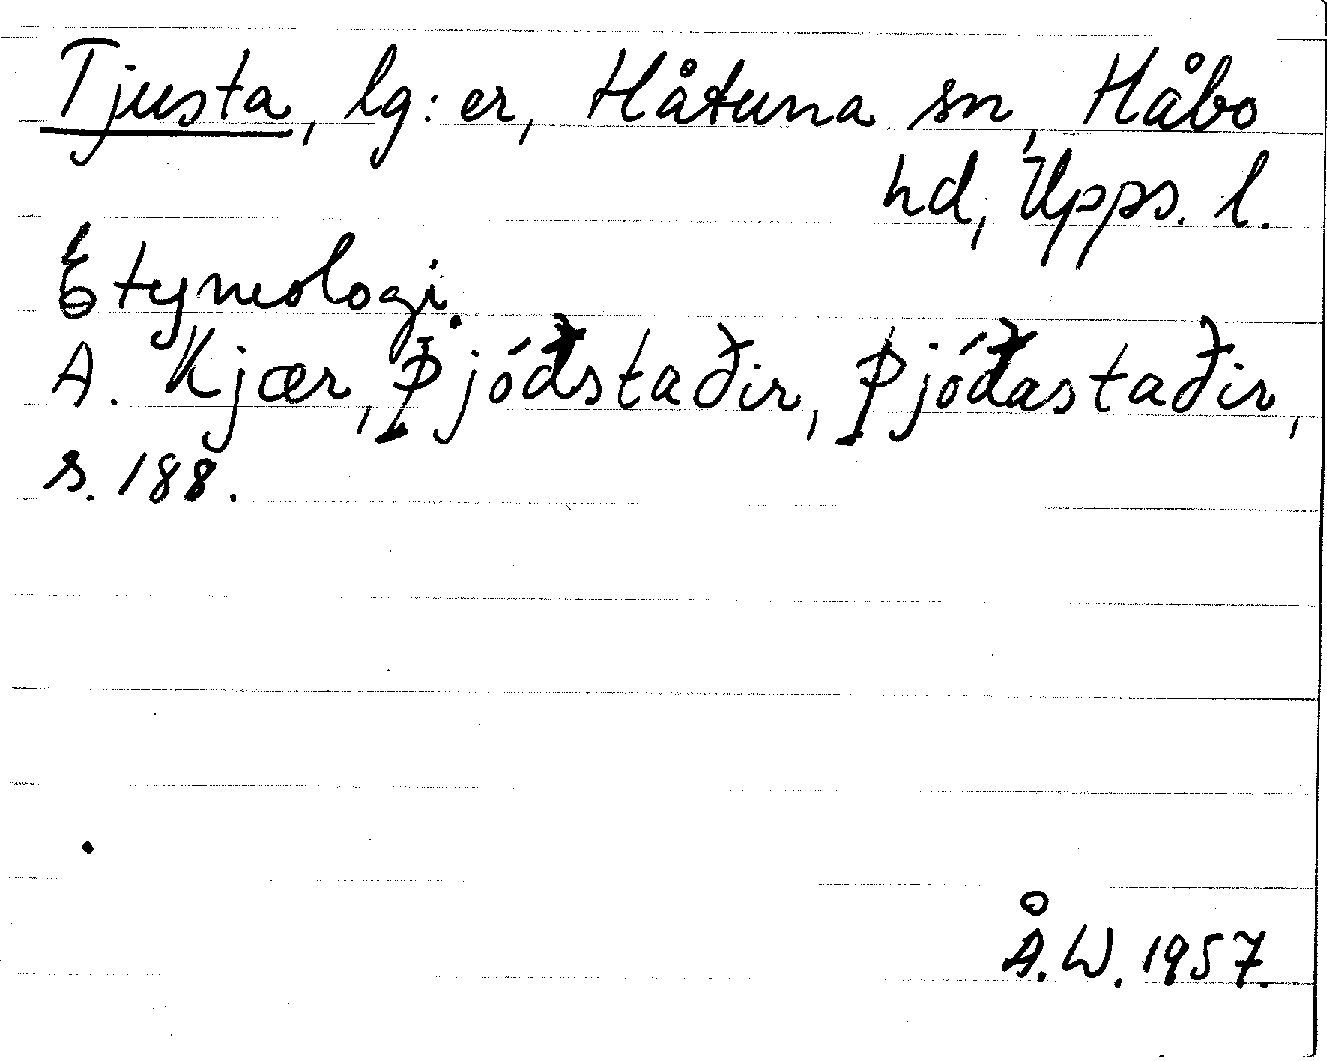 Tjusta, lg:er, Håtuna sn, Håbo
hd, Upps. l.
Etymologi.
A. Kjær, Þjóðstaðir, Þjóðastaðir,
s. 188.
Å.W. 1957.